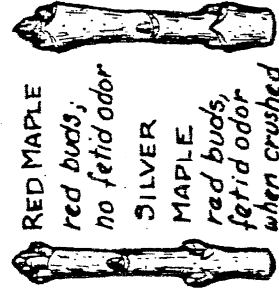 RED MAPLE
red buds;
no fetid odor
SILVER
MAPLE
red buds,
fetid odor
when crushed